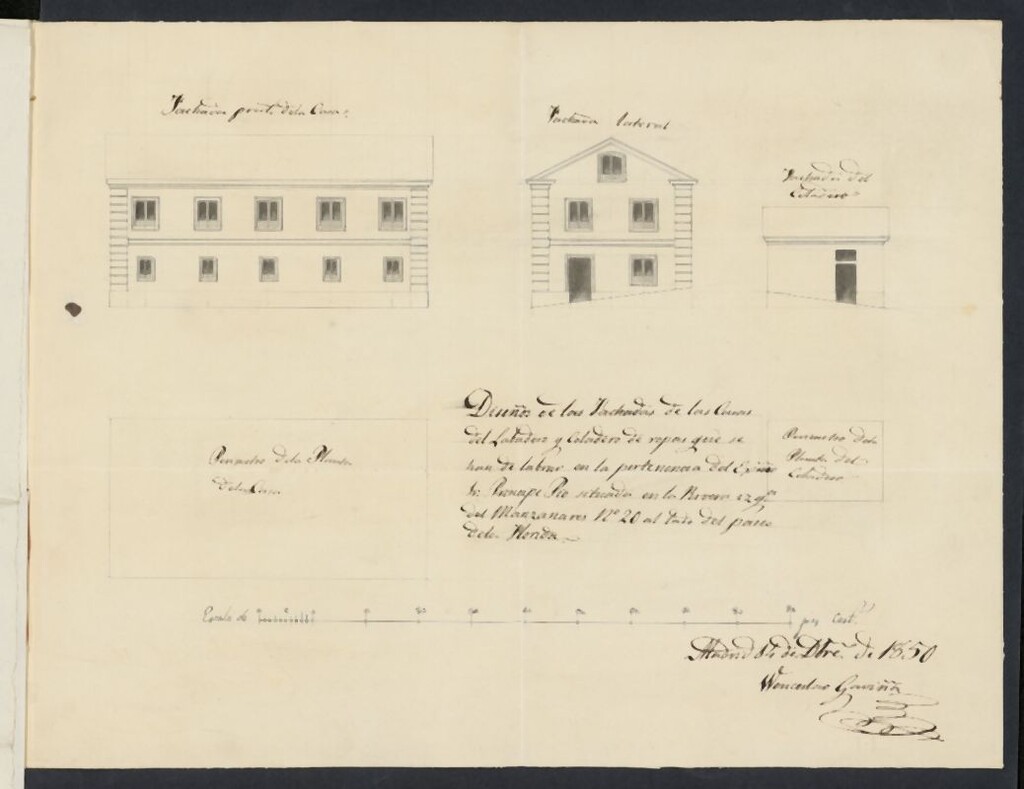 Fachada pral. de la Casa.
Fachada lateral
Fachada del
Coladero
Diseños de las Fachadas de las Casas
del Labadero y Coladero de ropas que se
han de labrar en la pertenencia del
Sr. Principe Pio situada en la Rivera izqda.
del Manzanares Nº 20 al lado del paseo
de la Florida.
Perimetro de la Planta
de la Casa
Perimetro de la
Planta del
Coladero
Escala de
pies Castos.
Madrid de Dbre. de 1850
Wenceslao Gaviña